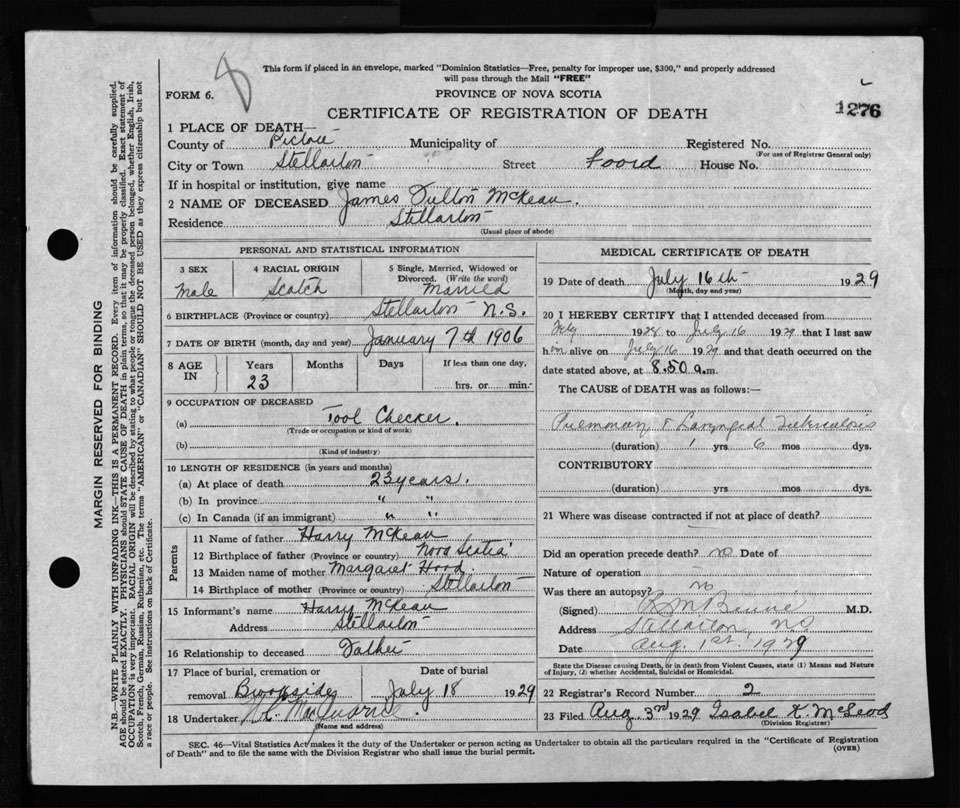 8
This form if placed in an envelope, marked "Dominion Statistics—Free, penalty for improper use, $300," and properly addressed
will pass through the Mail "FREE"
FORM 6.
PROVINCE OF NOVA SCOTIA
CERTIFICATE OF REGISTRATION OF DEATH
1276
1 PLACE OF DEATH—
County of Pictou Municipality of Registered No.
(For use of Registrar General only)
City or Town Stellarton Street Foord House No.
If in hospital or institution, give name
2 NAME OF DECEASED James Fulton McKean.
Residence Stellarton
(Usual place of abode)
PERSONAL AND STATISTICAL INFORMATION
3 SEX 4 RACIAL ORIGIN 5 Single, Married, Widowed or
Divorced. (Write the word)
Male Scotch Married
6 BIRTHPLACE (Province or country) Stellarton N.S.
7 DATE OF BIRTH (month, day and year) January 7th 1906
8 AGE IN Years Months Days If less than one day,
23 hrs. or min.
9 OCCUPATION OF DECEASED
(a) Tool Checker.
(Trade or occupation or kind of work)
(b)
(Kind of industry)
10 LENGTH OF RESIDENCE (in years and months)
(a) At place of death 23 years.
(b) In province " "
(c) In Canada (if an immigrant) " "
Parents
11 Name of father Harry McKean
12 Birthplace of father (Province or country) Nova Scotia
13 Maiden name of mother Margaret Hood
14 Birthplace of mother (Province or country) Stellarton
15 Informant's name Harry McKean
Address Stellarton
16 Relationship to deceased Father
17 Place of burial, cremation or Date of burial
removal Brookside July 18 1929
18 Undertaker
(Name and address)
MEDICAL CERTIFICATE OF DEATH
19 Date of death July 16th 1929
(Month, day and year)
20 I HEREBY CERTIFY that I attended deceased from
1928 to July 16 1929 that I last saw
him alive on July 16 1929 and that death occurred on the
date stated above, at 8.50 a.m.
The CAUSE of DEATH was as follows:—
Pulmonary & Laryngeal Tuberculosis
(duration) 1 yrs 6 mos dys.
CONTRIBUTORY
(duration) yrs mos dys.
21 Where was disease contracted if not at place of death?
Did an operation precede death? no Date of
Nature of operation
Was there an autopsy? no
(Signed) M.D.
Address Stellarton NS
Date Aug 1st. 1929
State the Disease causing Death, or in death from Violent Causes, state (1) Means and Nature
of Injury, (2) whether Accidental, Suicidal or Homicidal.
22 Registrar's Record Number 2
23 Filed Aug 3rd 1929 Isabel K. McLeod
(Division Registrar)
SEC. 46—Vital Statistics Act makes it the duty of the Undertaker or person acting as Undertaker to obtain all the particulars required in the "Certificate of Registration
of Death" and to file the same with the Division Registrar who shall issue the burial permit.
(OVER)
MARGIN RESERVED FOR BINDING
N.B.—WRITE PLAINLY WITH UNFADING INK—THIS IS A PERMANENT RECORD. Every item of information should be carefully supplied.
AGE should be stated EXACTLY. PHYSICIANS should STATE CAUSE OF DEATH in plain terms, so that it may be properly classified. Exact statement of
OCCUPATION is very important. RACIAL ORIGIN will be described by stating to what people or tongue the deceased person belonged, whether English, Irish,
Scotch, French, German, Russian, Ruthenian, etc. The terms "AMERICAN" or "CANADIAN" SHOULD NOT BE USED as they express citizenship but not
a race or people. See instructions on back of Certificate.